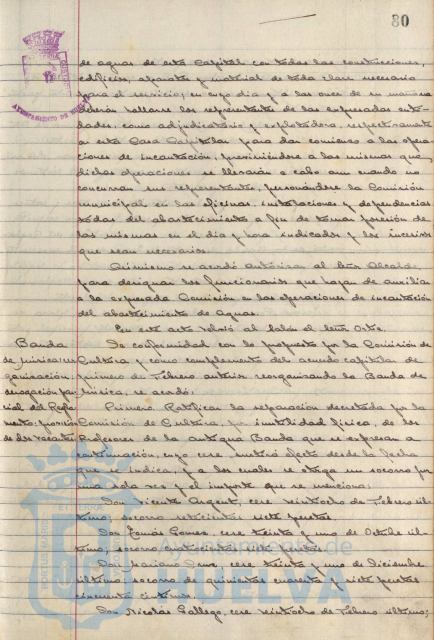 80
de aguas de esta Capital con todas las construcciones,
edificios, aparatos y material de toda clase necesario
para el servicio; en cuyo dia y a las once de su mañana
deberán hallarse los representantes de las expresadas enti-
dades, como adjudicataria y explotadora, respectivamente
en esta Casa Capitular para dar comienzo a las opera-
ciones de incautación, previniéndose a las mismas que
dichas operaciones se llevarán a cabo aun cuando no
concurran sus representantes, personándose la Comisión
municipal en las oficinas, instalaciones y dependencias
todas del abastecimiento a fin de tomar posesión de
las mismas en el dia y hora indicados y los
que sean necesarios.
Asimismo se acordó autorizar al Señor Alcalde
para designar los funcionarios que hayan de auxiliar
a la expresada Comisión en las operaciones de incautación
del abastecimiento de Aguas.
En este acto volvió al Salón el Señor Ortiz.
Banda
de música; reor-
ganización;
derogación par-
cial del Regla-
mento; provisión
de dos vacantes
De conformidad con lo propuesto por la Comisión de
Cultura y como complemento del acuerdo capitular de
primero de Febrero anterior reorganizando la Banda de
Música, se acordó:
Primero. Ratificar la separación decretada por la
Comisión de Cultura, por inutilidad física, de los
Profesores de la antigua Banda que se expresan a
continuación, cuyo cese, surtirá efecto desde la fecha
que se indica, y a los cuales se otorga un socorro por
una sola vez y el importe que se menciona:
Don Vicente Argent, cese veintiocho de Febrero úl-
timo; socorro setecientas siete pesetas.
Don Tomás Gomez, cese treinta y uno de Octubre úl-
timo; socorro cuatrocientas siete pesetas.
Don Mariano cese treinta y uno de Diciembre
último; socorro de quinientas cuarenta y siete pesetas
cincuenta céntimos.
Don Nicolás Gallego, cese veintiocho de Febrero último;
AYUNTAMIENTO DE HUELVA
HUELVA